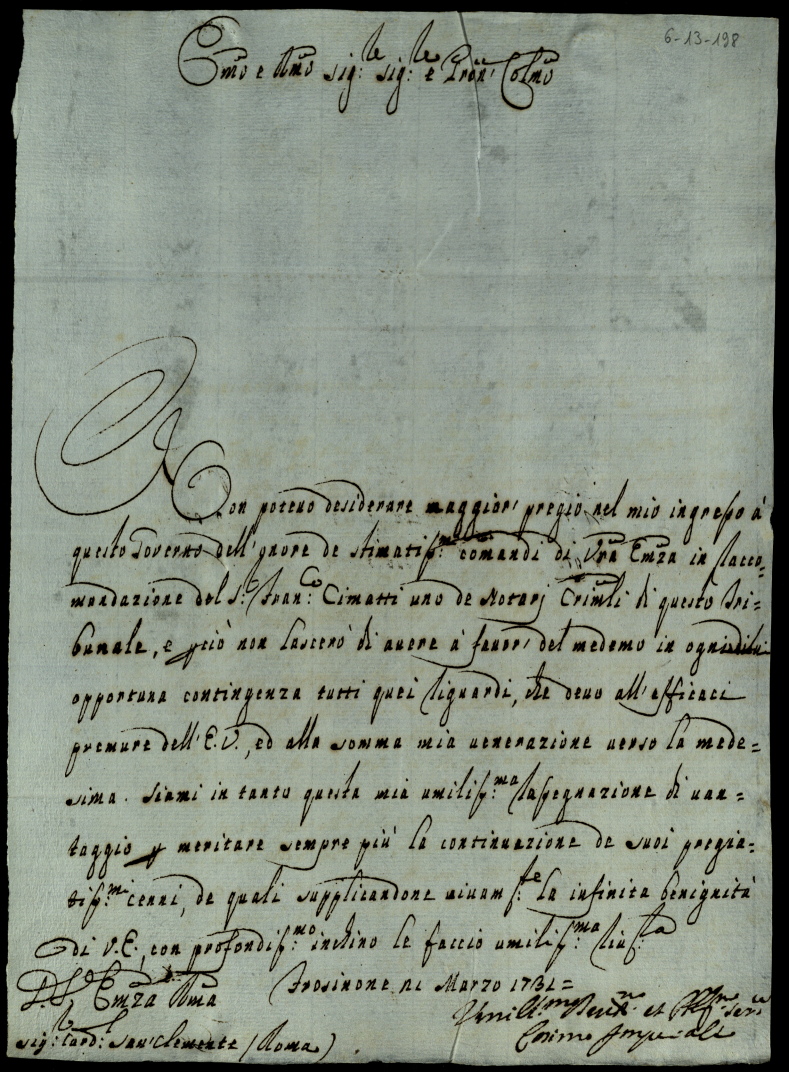 6-13-198
Emo e Rmo Sig:r Sig:r e Pron' Colmo
Non potevo desiderare maggior' pregio nel mio ingresso à
questo Governo dell'onore de stimatiss:mi comandi di Vra Emza in Racco=
mandazione del S:r Fran:co Cimatti uno de Notarj Crimli di questo Tri=
bunale, e perciò non lascerò di avere à favor' del medemo in ogni di lui
opportuna contingenza tutti quei riguardi, che devo all'efficaci
premure dell'E.V., ed alla somma mia venerazione verso la mede=
sima. Siami in tanto questa mia umiliss:ma rassegnazione di van=
taggio per meritare sempre più la continuazione de suoi pregia=
tiss:mi cenni, de quali supplicandone vivam:te la infinita benignità
di V.E., con profondiss:mo inchino le faccio umiliss:ma riv:za
D. V. Emza Rma Frosinone 21 Marzo 1731=
Umill:mo Devot:mo et Obl:mo Ser:re
Sig:r Card:l San Clemente (Roma) Cosimo Imperiali